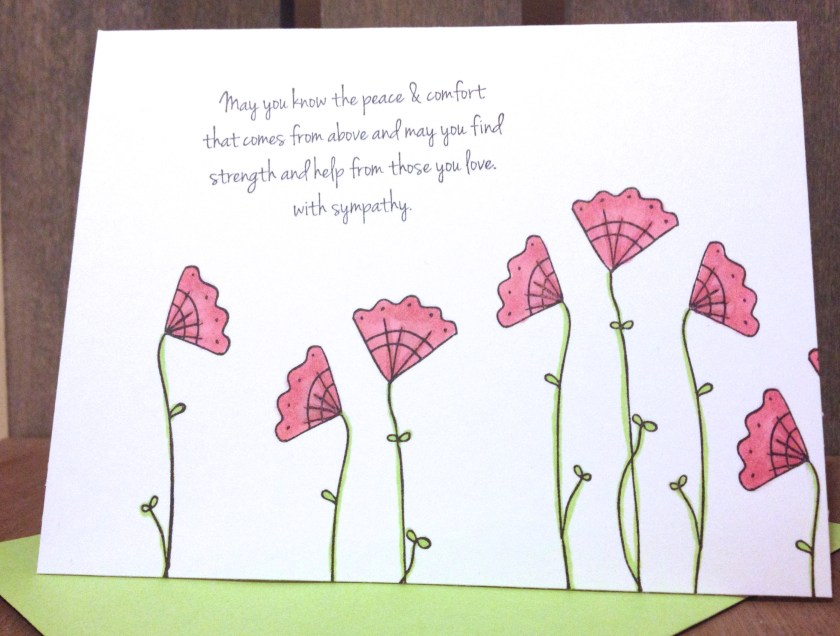 May you know the peace & comfort
that comes from above and may you find
strength and help from those you love.
with sympathy.